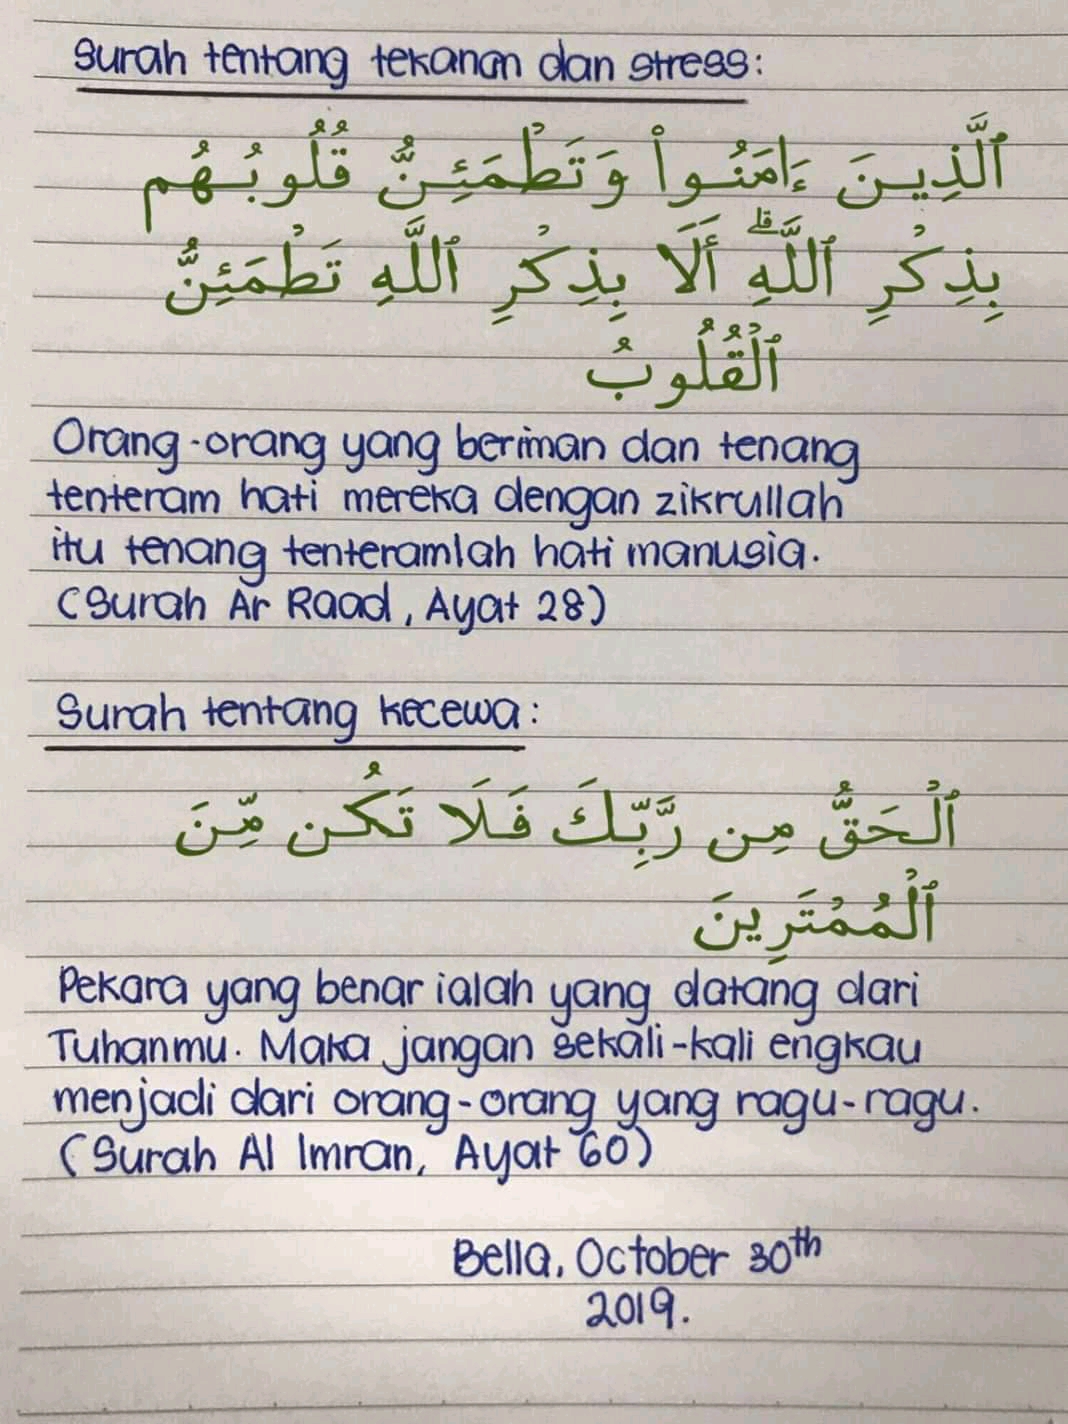 Surah tentang tekanan dan stress:
ٱلَّذِينَ ءَامَنُوا۟ وَتَطْمَئِنُّ قُلُوبُهُم
بِذِكْرِ ٱللَّهِ ۗ أَلَا بِذِكْرِ ٱللَّهِ تَطْمَئِنُّ
ٱلْقُلُوبُ
Orang-orang yang beriman dan tenang
tenteram hati mereka dengan zikrullah
itu tenang tenteramlah hati manusia.
(Surah Ar Raad, Ayat 28)
Surah tentang kecewa:
ٱلْحَقُّ مِن رَّبِّكَ فَلَا تَكُن مِّنَ
ٱلْمُمْتَرِينَ
Pekara yang benar ialah yang datang dari
Tuhanmu. Maka jangan sekali-kali engkau
menjadi dari orang-orang yang ragu-ragu.
(Surah Al Imran, Ayat 60)
Bella, October 30th
2019.